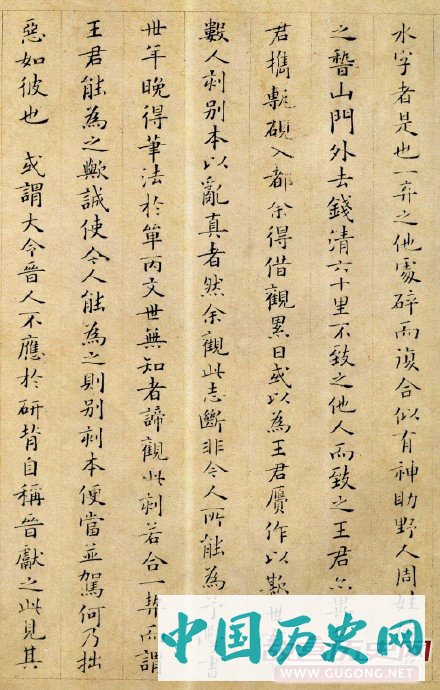 水字者是也一弃之他處碎而復合似有神助野人周
之稽山門外去錢清六十里不致之他人而致之王君亦異
君攜甎硯入都余得借觀累日或以為王君贗作以欺世
數人刻别本以亂真者然余觀此志斷非今人所能為予學書
卅年晚得筆法於單丙文世無知者諦觀此刻若合一契而謂
王君能為之歟誠使今人能為之則别刻本便當並駕何乃拙
惡如彼也 或謂大令晉人不應於研背自稱晉獻之此見其
中国历史网
WWW.GUGONG.NET